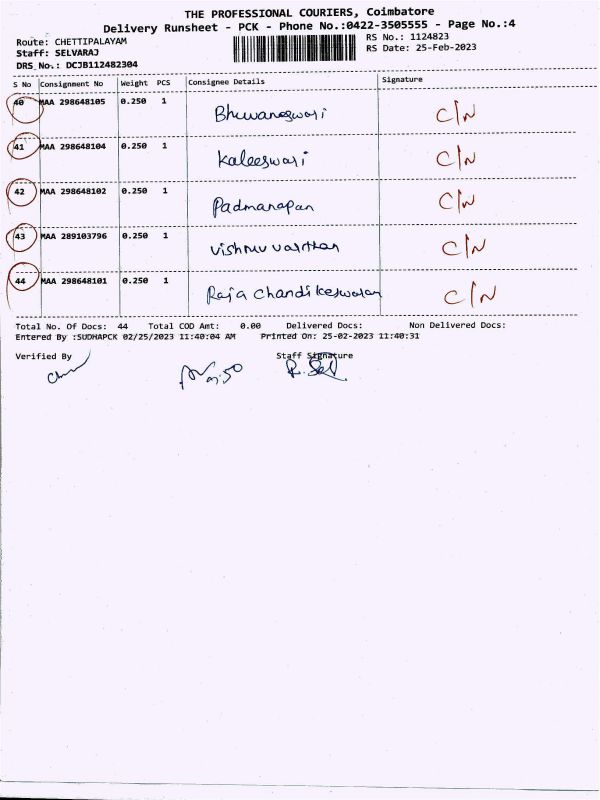 THE PROFESSIONAL COURIERS, Coimbatore
Delivery Runsheet - PCK - Phone No.:0422-3505555 - Page No.:4
Route: CHETTIPALAYAM RS No.: 1124823
Staff: SELVARAJ RS Date: 25-Feb-2023
DRS_No.: DCJB112482304
S No Consignment No Weight PCS Consignee Details Signature
40 MAA 298648105 0.250 1 Bhuvaneswari C/N
41 MAA 298648104 0.250 1 Kaleeswari C/N
42 MAA 298648102 0.250 1 Padmanapan C/N
43 MAA 289103796 0.250 1 Vishnu varthan C/N
44 MAA 298648101 0.250 1 Raja Chandikeswaran C/N
Total No. Of Docs: 44 Total COD Amt: 0.00 Delivered Docs: Non Delivered Docs:
Entered By :SUDHAPCK 02/25/2023 11:40:04 AM Printed On: 25-02-2023 11:40:31
Verified By Staff Signature
R. Sel